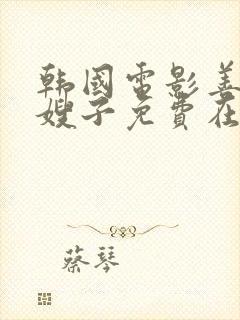 韩國電影善
嫂子免費在
蔡琴